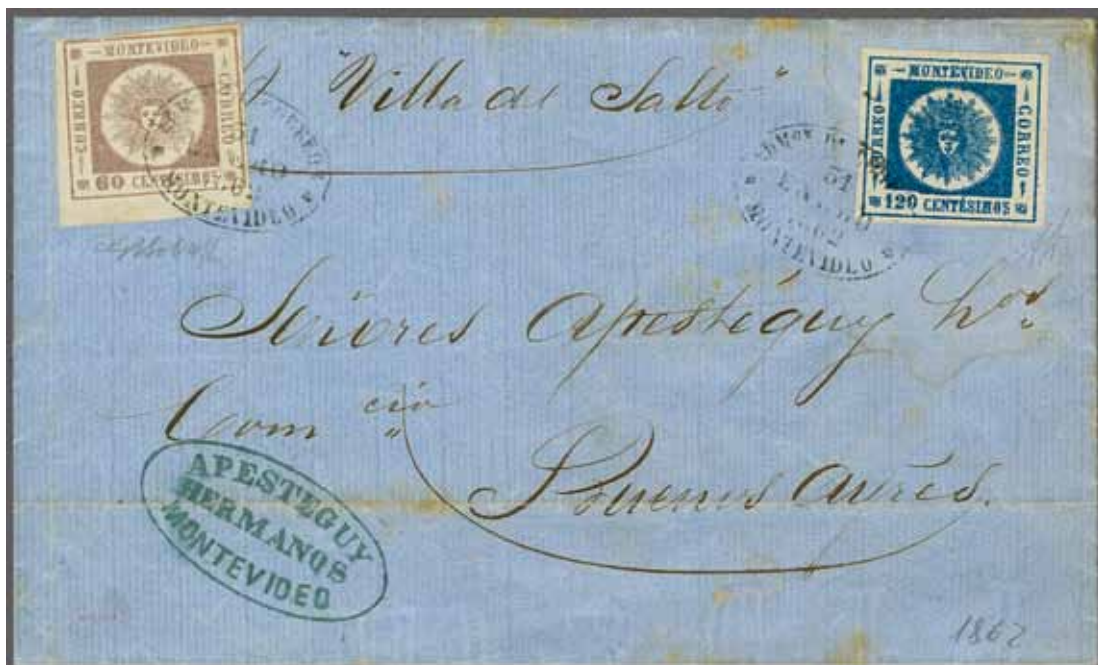 MONTEVIDEO
CORREO
CORREO
60 CENTESIMOS
"Villa del Salto"
MONTEVIDEO
CORREO
CORREO
120 CENTÉSIMOS
MONTEVIDEO
31
MONTEVIDEO
Señores Apestéguy Hos
Com cio
Buenos Aires.
APESTEGUY
HERMANOS
MONTEVIDEO
1862